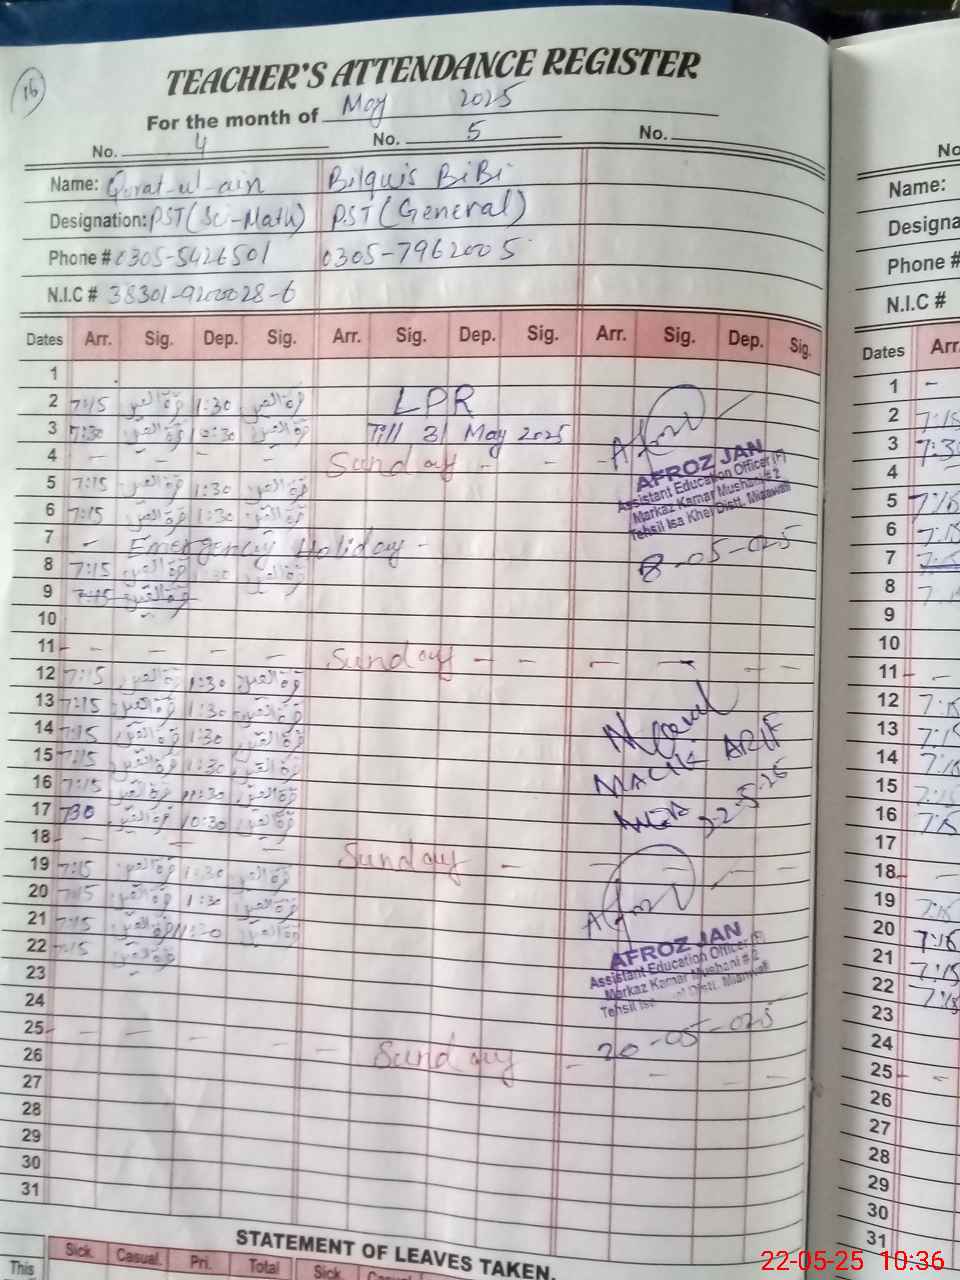 16
TEACHER'S ATTENDANCE REGISTER
For the month of May 2025
No. 4 No. 5 No.
Name: Qurat-ul-ain Bilquis BiBi
Designation: PST (Sc-Math) PST (General)
Phone # 0305-5426501 0305-7962005
N.I.C # 38301-9200028-6
Dates Arr. Sig. Dep. Sig. Arr. Sig. Dep. Sig. Arr. Sig. Dep. Sig.
1
2 7:15 قرۃ العین 1:30 قرۃ العین LPR
3 7:30 قرۃ العین 10:30 قرۃ العین Till 31 May 2025
4 - - - - Sunday - - -
5 7:15 قرۃ العین 1:30 قرۃ العین
6 7:15 قرۃ العین 1:30 قرۃ العین
7 - Emergency Holiday -
8 7:15 قرۃ العین 1:30 قرۃ العین
9 7:15 قرۃ العین
10
11 - - - - Sunday - - - - - -
12 7:15 قرۃ العین 1:30 قرۃ العین
13 7:15 قرۃ العین 1:30 قرۃ العین
14 7:15 قرۃ العین 1:30 قرۃ العین
15 7:15 قرۃ العین 1:30 قرۃ العین
16 7:15 قرۃ العین 11:30 قرۃ العین
17 730 قرۃ العین 10:30 قرۃ العین
18 - - - - Sunday - - - -
19 7:15 قرۃ العین 1:30 قرۃ العین
20 7:15 قرۃ العین 1:30 قرۃ العین
21 7:15 قرۃ العین قرۃ العین
22 7:15 قرۃ العین
23
24
25 - - - - - Sunday - - - -
26
27
28
29
30
31
AFROZ JAN
Assistant Education Officer (F)
Markaz Kamar Mushani # 2
Tehsil Isa Khel Distt. Mianwali
8-05-025
MALIK ARIF
22-5-25
AFROZ JAN
Assistant Education Officer (F)
Markaz Kamar Mushani # 2
Tehsil Isa Distt. Mianwali
20-05-025
STATEMENT OF LEAVES TAKEN.
This Sick. Casual. Pri. Total Sick.
No
Name:
Designa
Phone #
N.I.C #
Dates Arr.
1 -
2 7:15
3 7:30
4 -
5 7:15
6 7:15
7
8
9
10
11 -
12 7:15
13 7:15
14 7:15
15 7:15
16 7:15
17
18 -
19 7:15
20 7:16
21 7:15
22 7:15
23
24
25 -
26
27
28
29
30
31
22-05-25 10:36